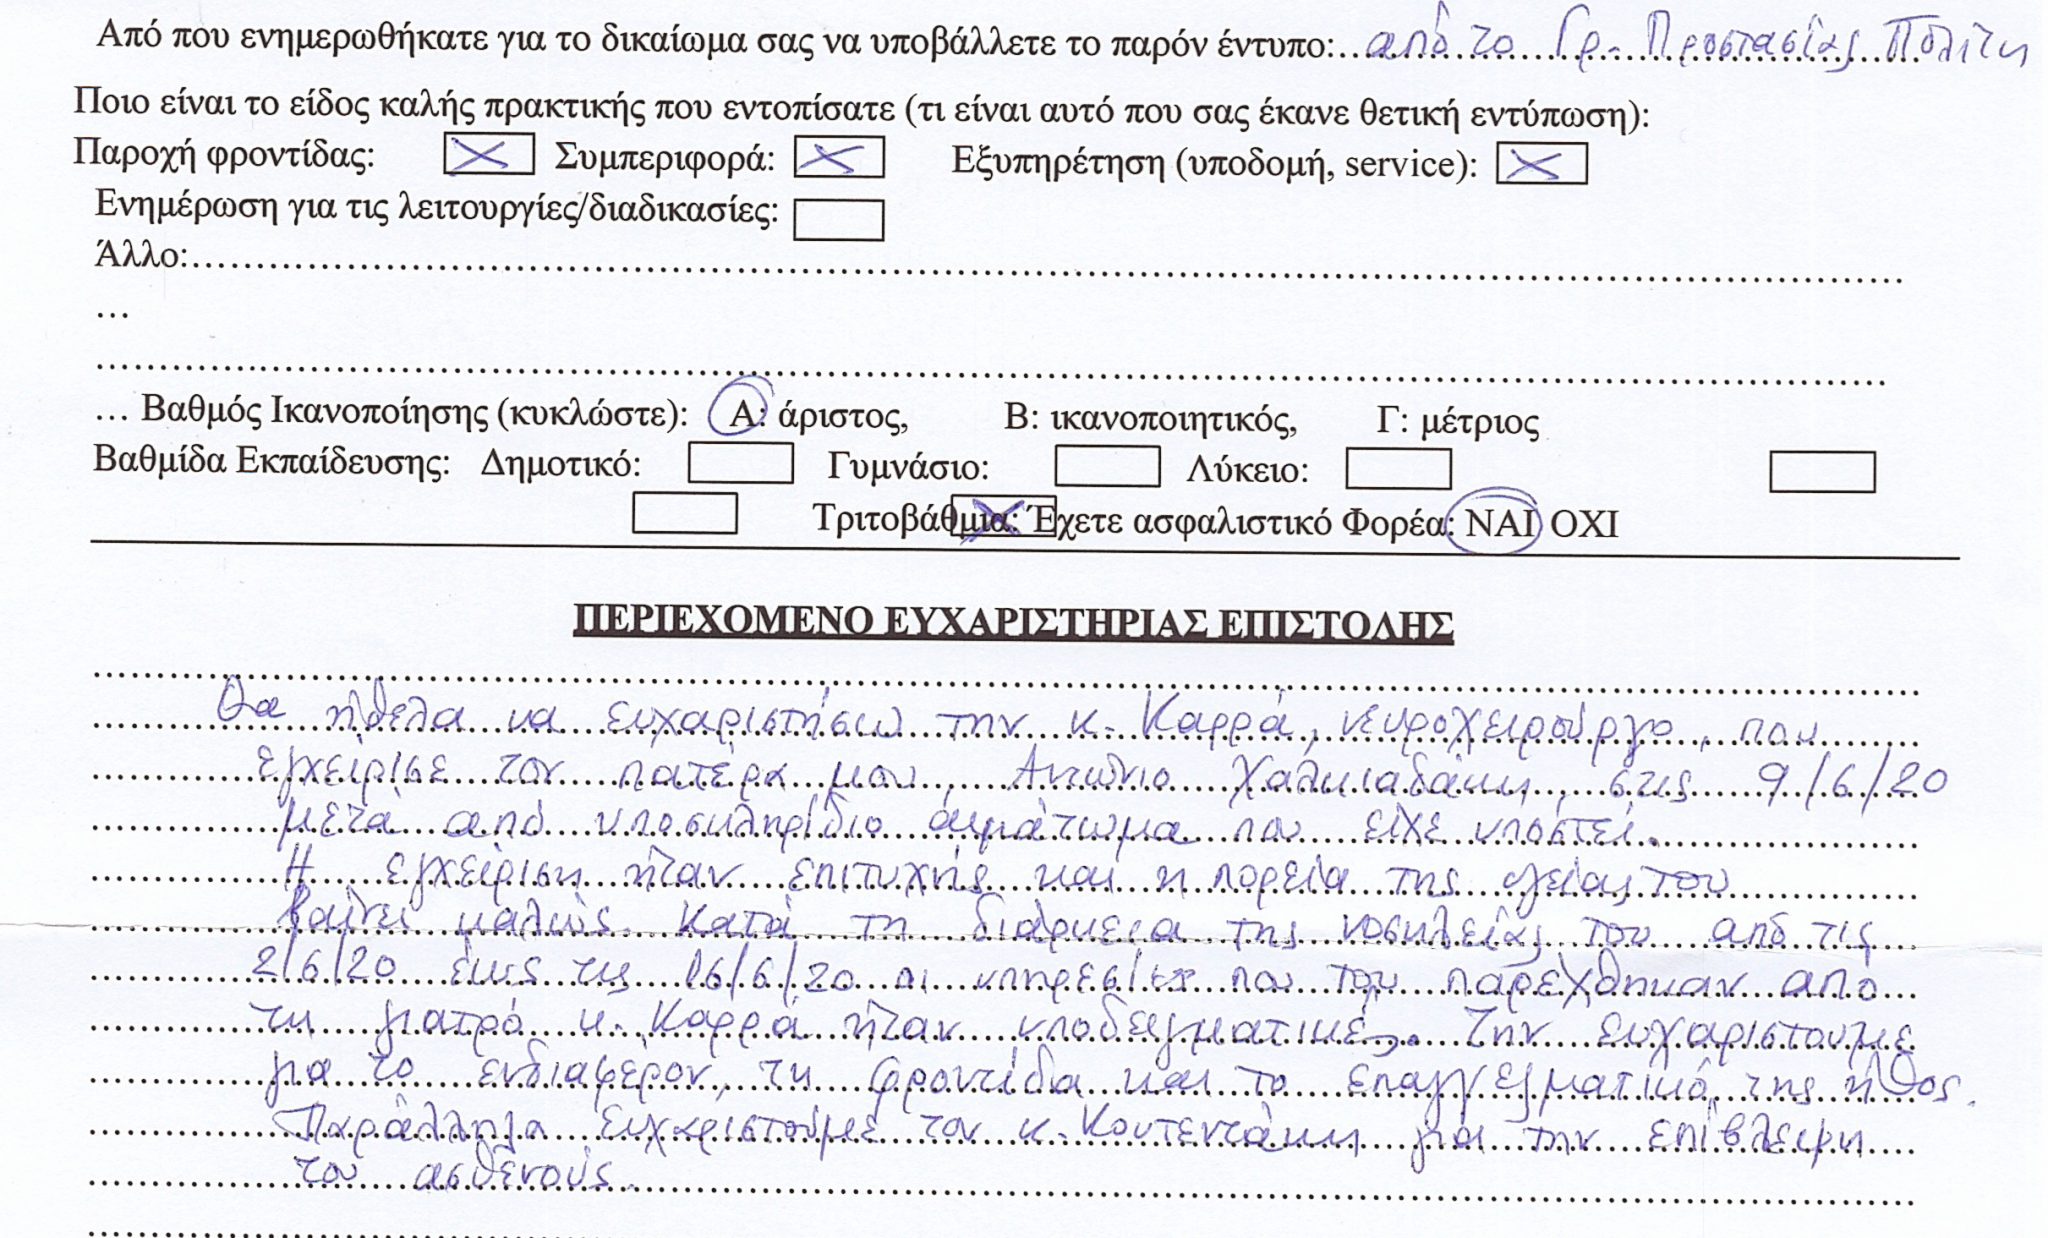 Από που ενημερωθήκατε για το δικαίωμα σας να υποβάλλετε το παρόν έντυπο:...από το Γρ. Προστασίας Πολίτη
Ποιο είναι το είδος καλής πρακτικής που εντοπίσατε (τι είναι αυτό που σας έκανε θετική εντύπωση):
Παροχή φροντίδας: X Συμπεριφορά: X Εξυπηρέτηση (υποδομή, service): X
Ενημέρωση για τις λειτουργίες/διαδικασίες:
Άλλο:...
...
... Βαθμός Ικανοποίησης (κυκλώστε): Α: άριστος, Β: ικανοποιητικός, Γ: μέτριος
Βαθμίδα Εκπαίδευσης: Δημοτικό: Γυμνάσιο: Λύκειο:
Τριτοβάθμια: X Έχετε ασφαλιστικό Φορέα: ΝΑΙ ΟΧΙ
ΠΕΡΙΕΧΟΜΕΝΟ ΕΥΧΑΡΙΣΤΗΡΙΑΣ ΕΠΙΣΤΟΛΗΣ
Θα ήθελα να ευχαριστήσω την κ. Καρρά, νευροχειρούργο, που
εγχείρισε τον πατέρα μου, Αντώνιο Χαλκιαδάκη, στις 9/6/20
μετά από υποσκληρίδιο αιμάτωμα που είχε υποστεί.
Η εγχείριση ήταν επιτυχής και η πορεία της υγείας του
βαίνει καλώς. Κατά τη διάρκεια της νοσηλείας του από τις
2/6/20 έως τις 16/6/20 οι υπηρεσίες που του παρέχθηκαν από
τη γιατρό κ. Καρρά ήταν υποδειγματικές. Την ευχαριστούμε
για το ενδιαφέρον, τη φροντίδα και το επαγγελματικό της ήθος.
Παράλληλα ευχαριστούμε τον κ. Κουτεντάκη για την επίβλεψη
του ασθενούς.